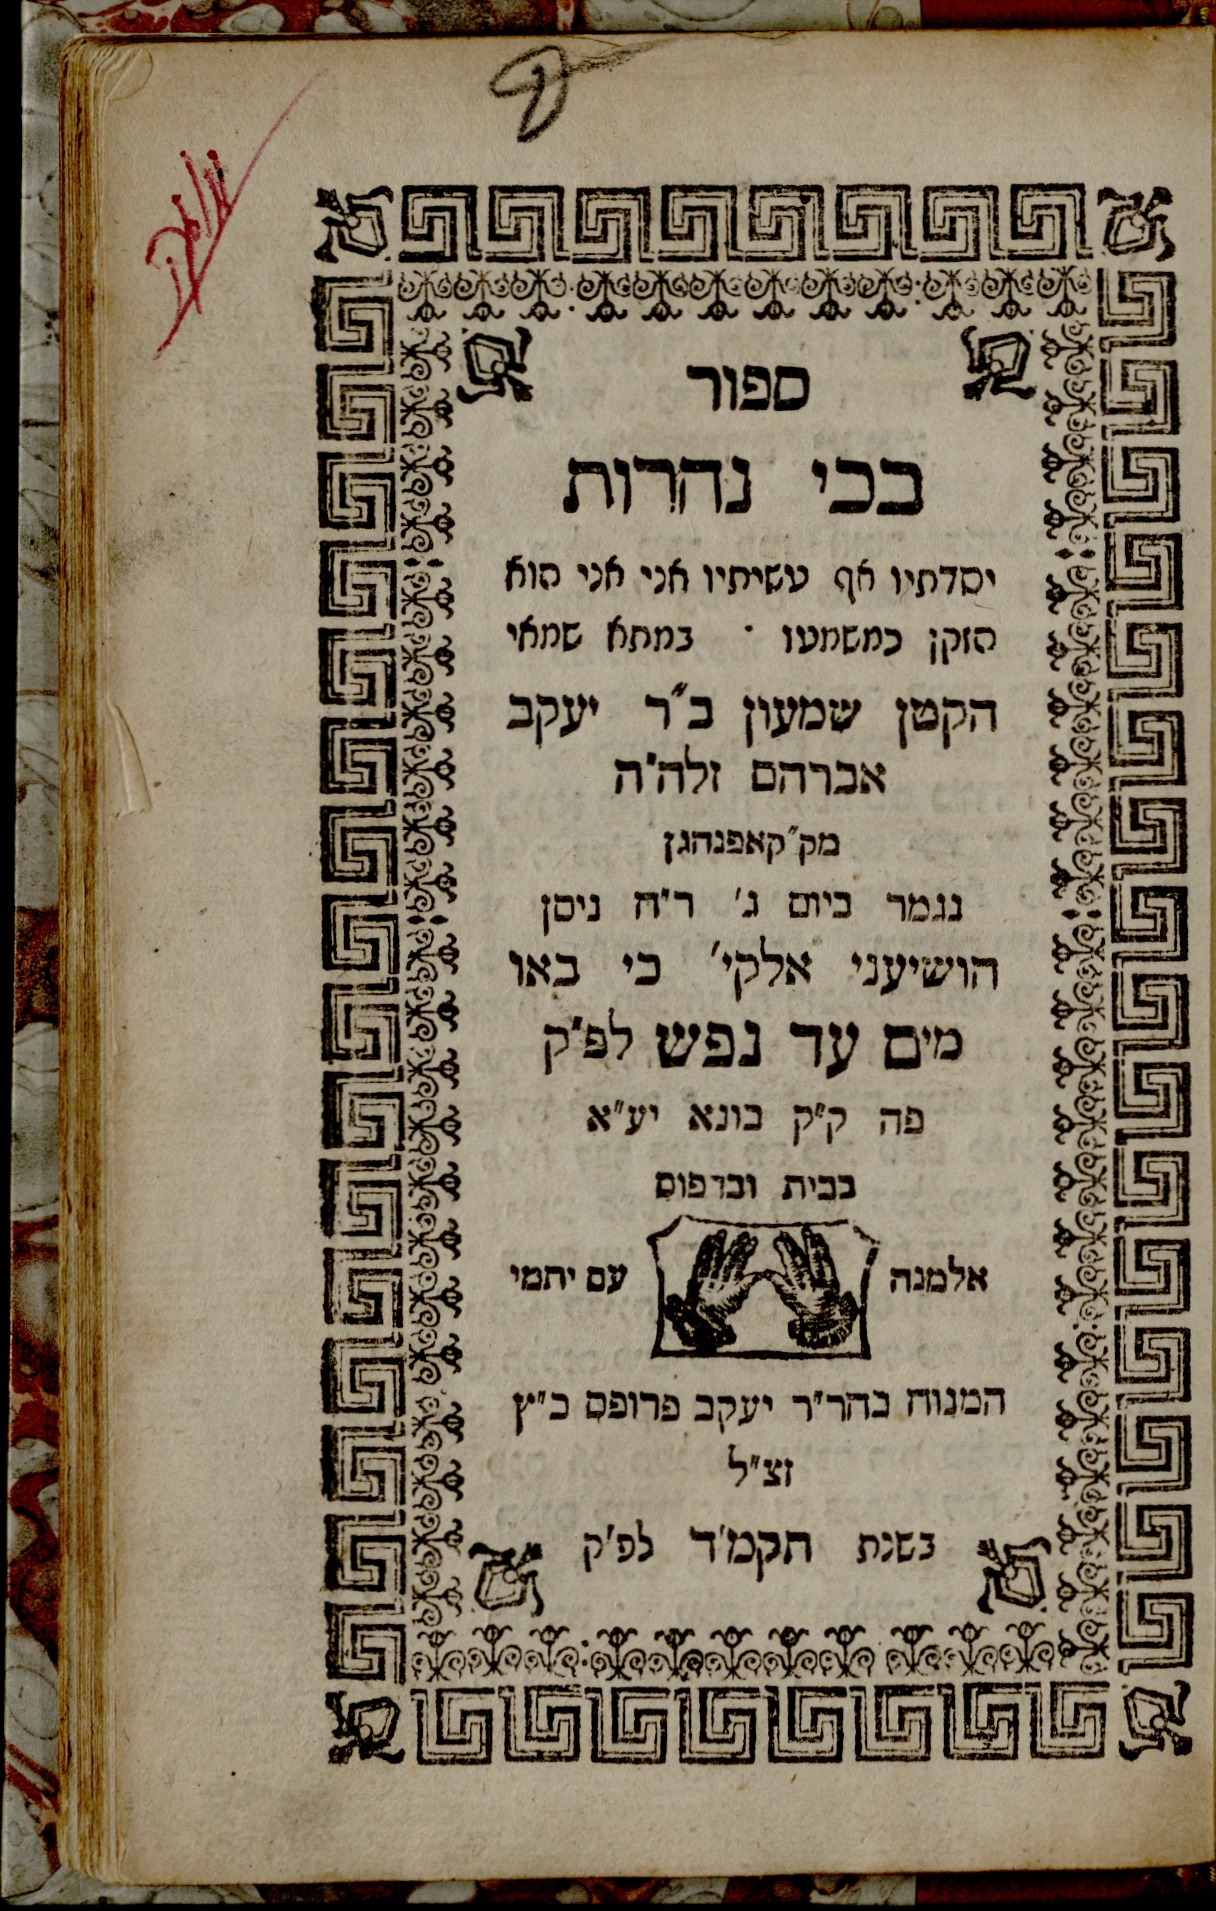 ספור
בכי נהרות
יסדתיו אף עשיתיו אני אני הוא
הזקן כמשמעו · במתא שמאי
הקטן שמעון ב״ר יעקב
אברהם זלה״ה
מק״ק קאפנהגן
נגמר ביום ג׳ ר״ח ניסן
הושיעני אלקי׳ כי באו
מים עד נפש לפ״ק
פה ק״ק בונא יע״א
בבית ובדפוס
אלמנה עם יתמי
המנוח כהר״ר יעקב פרופס כ״ץ
זצ״ל
בשנת תקמ״ד לפ״ק